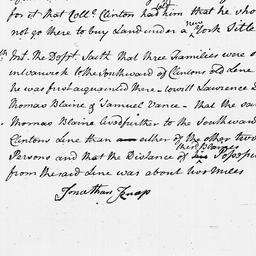 for it that Coll.o Clinton had told him that he who
not go there to buy Land under a new York Title
Int. The Dep.t Saith that three Families were
to the Southward of Clintons old Line
he was first acquainted there - towill Lawrence D
Thomas Blaine & Samuel Vance - that the sa
Thomas Blaine lived further to the Southward
Clintons Line than either of the other two
Persons and that the Distance of their Blaines Possess
from the said Line was about two Miles
Jonathan Knap